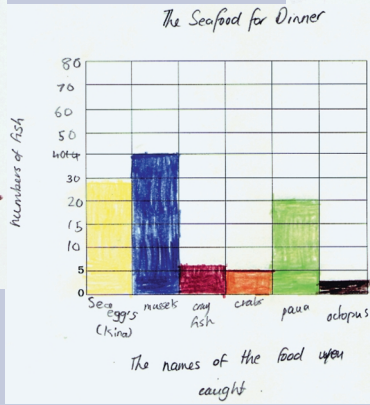 The Seafood for Dinner
numbers of fish
80
70
60
50
40
30
20
15
10
5
0
Sea eggs (Kina)
mussels
cray fish
crabs
paua
octopus
The names of the food
caught.